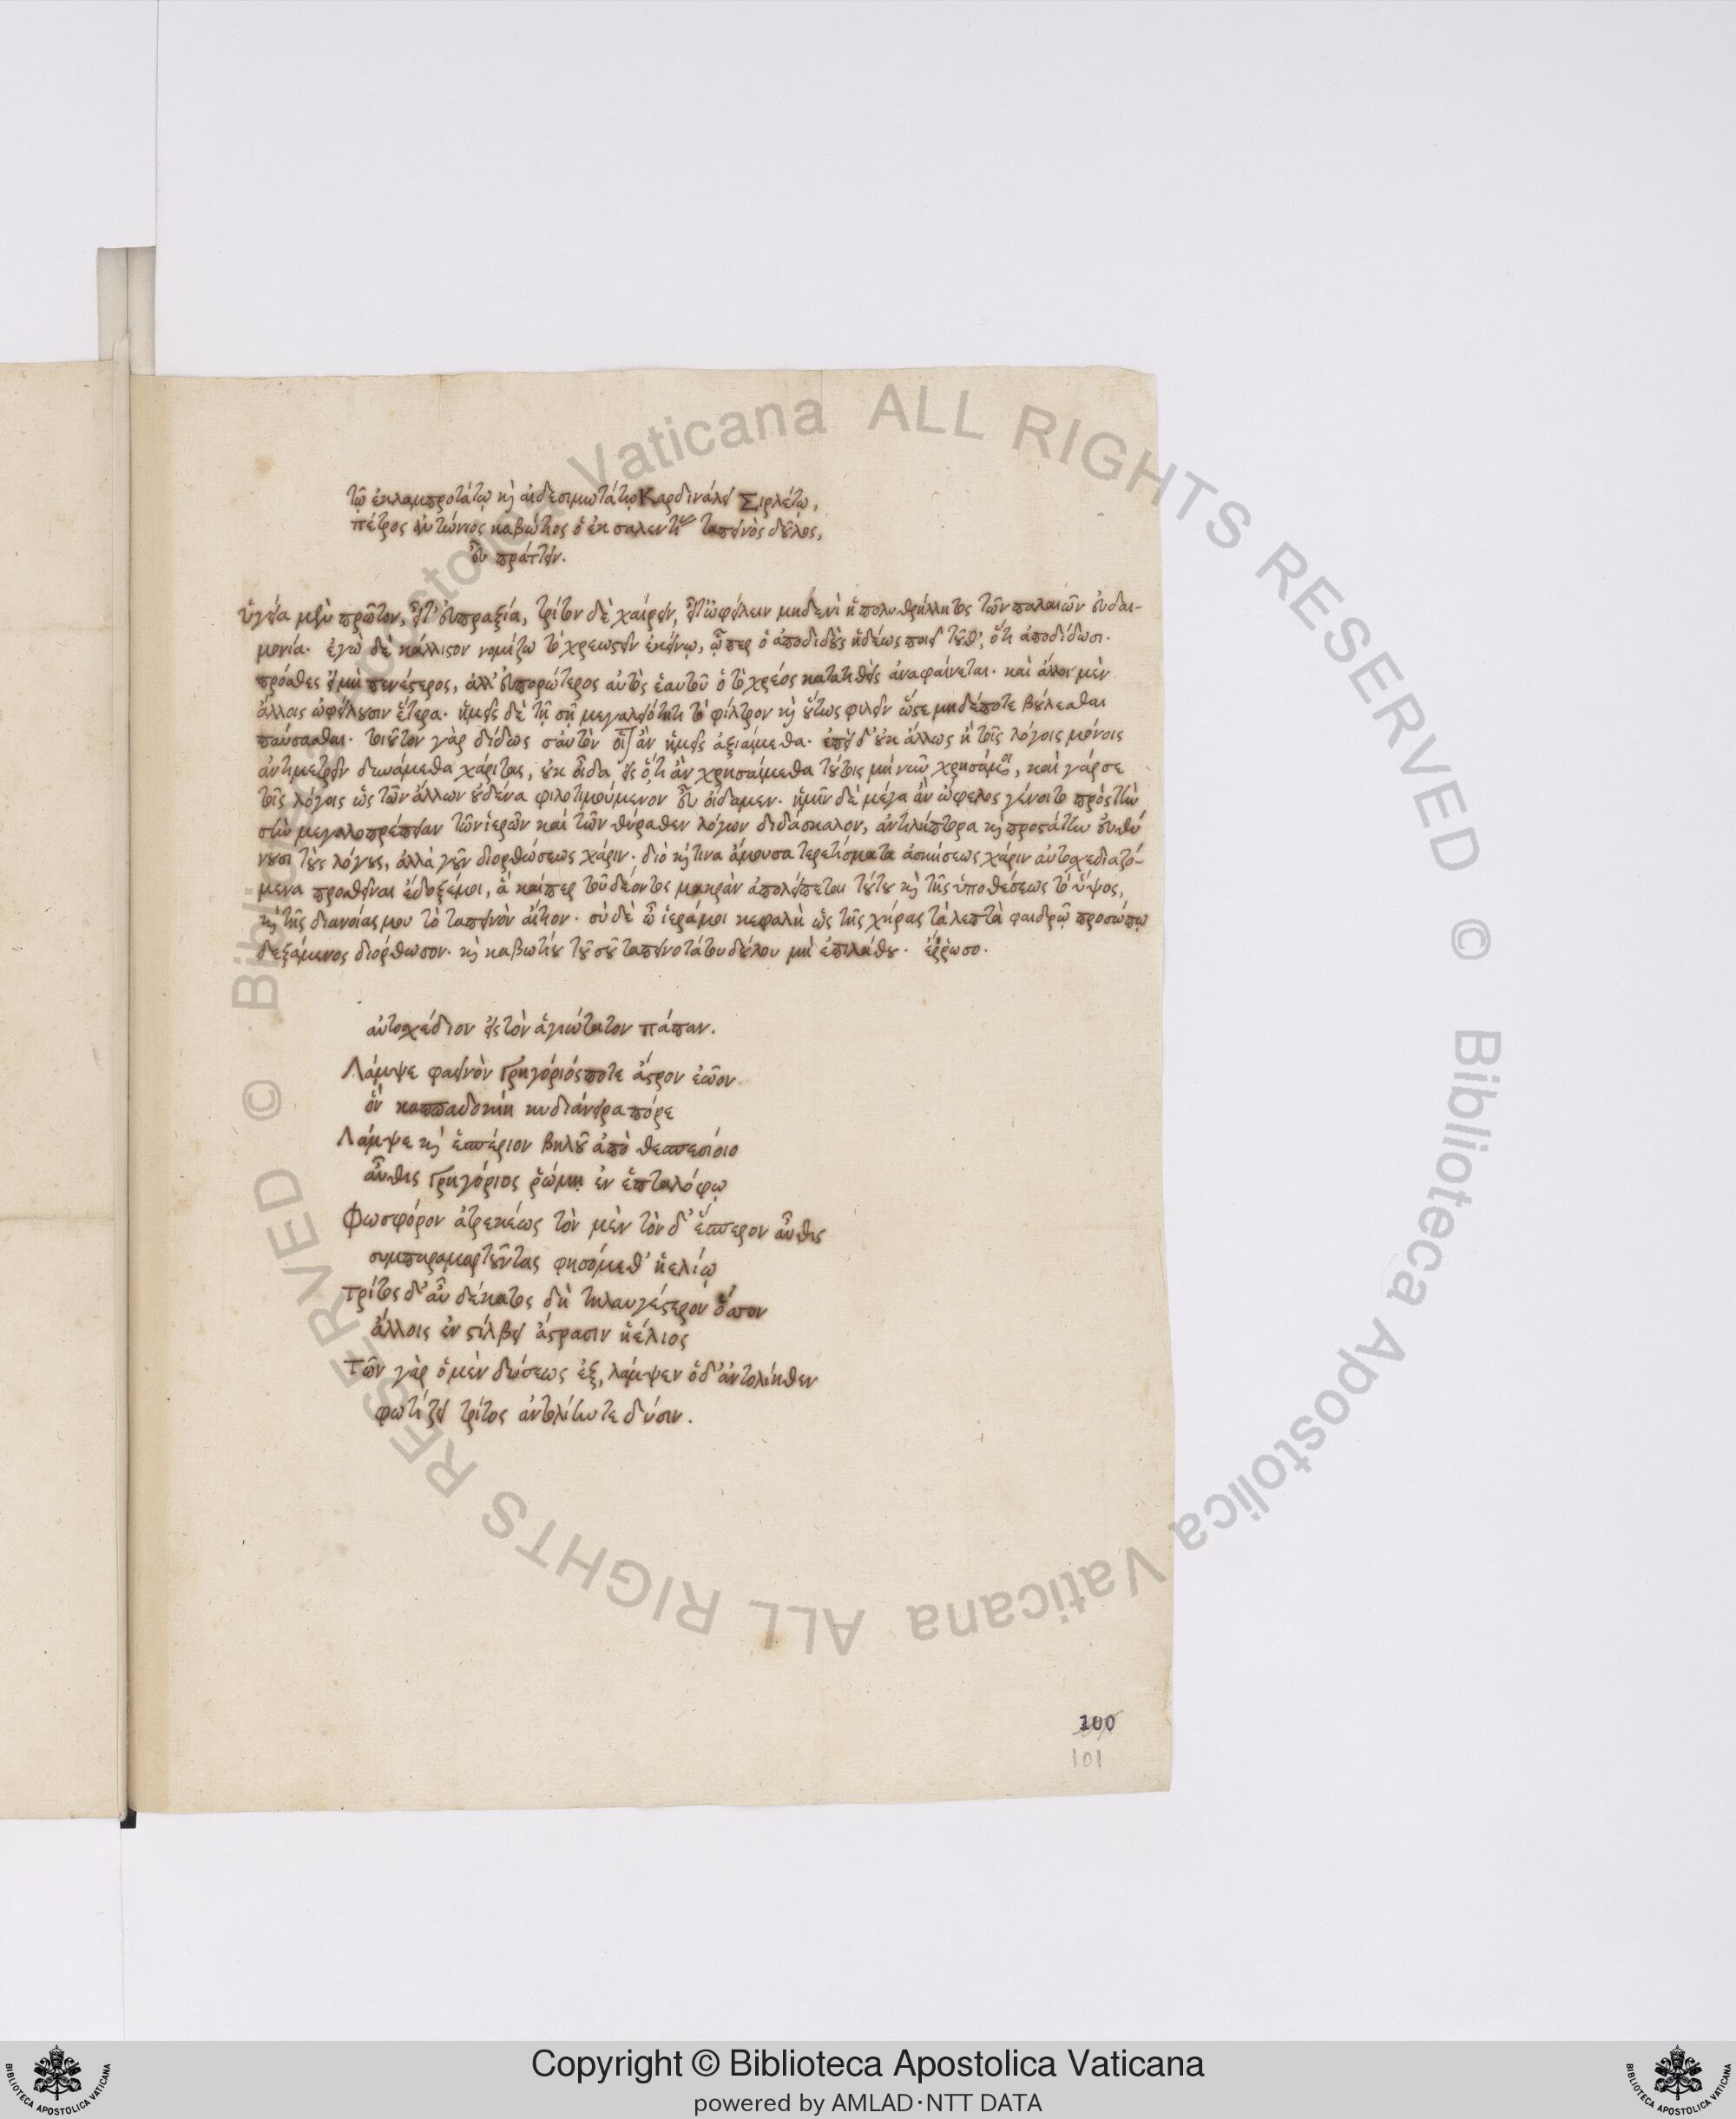 τῷ ἐκλαμπροτάτῳ καὶ αἰδεσιμωτάτῳ Καρδινάλει Σιρλέτῳ,
πέτρος ἀντώνιος καβώτιος ὁ ἐκ σαλεντί ταπεινὸς δοῦλος,
εὖ πράττειν.
ὑγεία μὲν πρῶτον, εἶτ' εὐπραξία, τρίτον δὲ χαίρειν, εἶτ' ὠφείλειν μηδενὶ ἡ πολυθρύλλητος τῶν παλαιῶν εὐδαι-
μονία. ἐγὼ δὲ κάλλιστον νομίζω τὸ χρεωστεῖν ἐκείνῳ, ᾧπερ ὁ ἀποδιδοὺς ἡδέως ποιεῖ τοῦθ', ὅτι ἀποδίδωσι.
πρόσθες εἰ μὴ πενέστερος, ἀλλ' εὐπορώτερος αὐτὸς ἑαυτοῦ ὁ τὸ χρέος κατατιθεὶς ἀναφαίνεται. καὶ ἄλλοι μὲν
ἄλλοις ὠφείλουσιν ἕτερα. ἡμεῖς δὲ τῇ σῇ μεγαλειότητι τὸ φίλτρον καὶ οὕτως φιλεῖν ὥστε μηδέποτε βούλεσθαι
παύσασθαι. τοιοῦτον γὰρ δίδως σαυτὸν οἷ ἂν ἡμεῖς ἀξιαίμεθα. ἐπεὶ δ' οὐκ ἄλλως ἢ τοῖς λόγοις μόνοις
ἀντιμετρεῖν δυνάμεθα χάριτας, οὐκ οἶδα εἰς ὅ,τι ἂν χρησαίμεθα τούτοις μὴ νῦν χρησάμενοι, καὶ γάρ σε
τοῖς λόγοις ὡς τῶν ἄλλων οὐδένα φιλοτιμούμενον εὖ οἴδαμεν. ἡμῖν δὲ μέγα ἂν ὤφελος γένοιτο πρὸς τὴν
σὴν μεγαλοπρέπειαν τῶν ἱερῶν καὶ τῶν θύραθεν λόγων διδάσκαλον, ἀντιλήπτορα καὶ προστάτην εὐθύ
νουσι τοὺς λόγους, ἀλλὰ γοῦν διορθώσεως χάριν. διὸ καί τινα ἄμουσα τερετίσματα ἀσκήσεως χάριν αὐτοσχεδιαζό-
μενα προσθεῖναι ἔδοξέ μοι, ἃ καίπερ τοῦ δέοντος μακρὰν ἀπολείπεται τούτου καὶ τῆς ὑποθέσεως τὸ ὕψος,
καὶ τῆς διανοίας μου τὸ ταπεινὸν αἴτιον. σὺ δὲ ὦ ἱερά μοι κεφαλὴ ὡς τῆς χήρας τὰ λεπτὰ φαιδρῷ προσώπῳ
δεξάμενος διόρθωσον. καὶ καβωτίου τοῦ σοῦ ταπεινοτάτου δούλου μὴ ἐπιλάθου. ἔῤῥωσο.
αὐτοσχέδιον εἰς τὸν ἁγιώτατον πάπαν.
Λάμψε φαεινὸν Γρηγόριός ποτε ἄστρον ἑῶον
ὃν καππαδοκίη κυδιάνειρα πόρε
Λάμψε καὶ ἑσπέριον βηλοῦ ἀπὸ θεσπεσίοιο
αὖθις Γρηγόριος ῥώμῃ ἐν ἑπταλόφῳ
Φωσφόρον ἀτρεκέως τὸν μὲν τὸν δ' ἕσπερον αὖθις
συμπαρομαρτοῦντας φησόμεθ' ἠελίῳ
τρίτος δ' αὖ δέκατος δὴ τηλαυγέστερον ὅσσον
ἄλλοις ἐν στίλβει ἄστρασιν ἠέλιος
τῶν γὰρ ὁ μὲν δύσεως ἐξ, λάμψεν ὁ δ' ἀντολίηθεν
φωτίζει τρίτος ἀντολίην τε δύσιν.
100
101
Copyright © Biblioteca Apostolica Vaticana
powered by AMLAD·NTT DATA
BIBLIOTECA APOSTOLICA VATICANA
BIBLIOTECA APOSTOLICA VATICANA
© Biblioteca Apostolica Vaticana ALL RIGHTS RESERVED
© Biblioteca Apostolica Vaticana ALL RIGHTS RESERVED